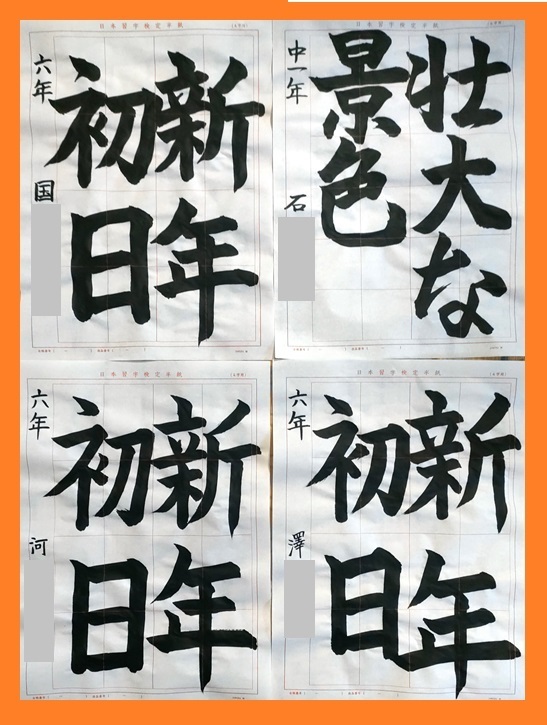 日本習字検定
新年
初日
六年 国
日本習字検定
壮大な
景色
中一年 石
日本習字検定
新年
初日
六年 河
日本習字検定
新年
初日
六年 澤